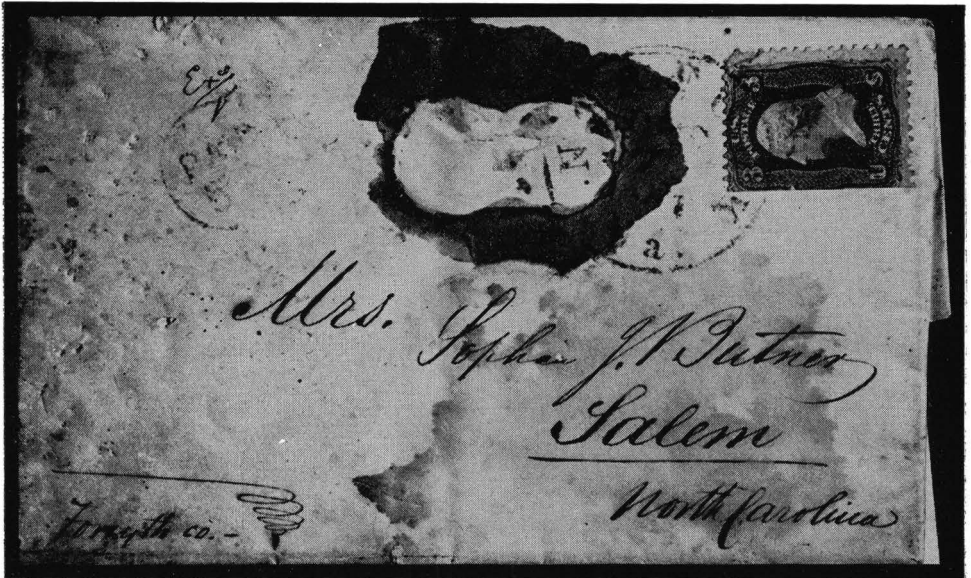 Exd
Mrs.
Sophia J. V Butner
Salem
North Carolina
Forsyth co. -
N.
a